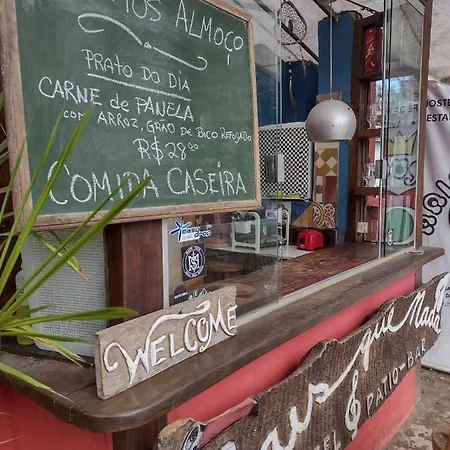 ALMOÇO
PRATO DO DIA
CARNE de PANELA
com ARROZ, GRÃO DE BICO REFOGADO
R$28,00
COMIDA CASEIRA
WELCOME
que Nada
PATIO-BAR